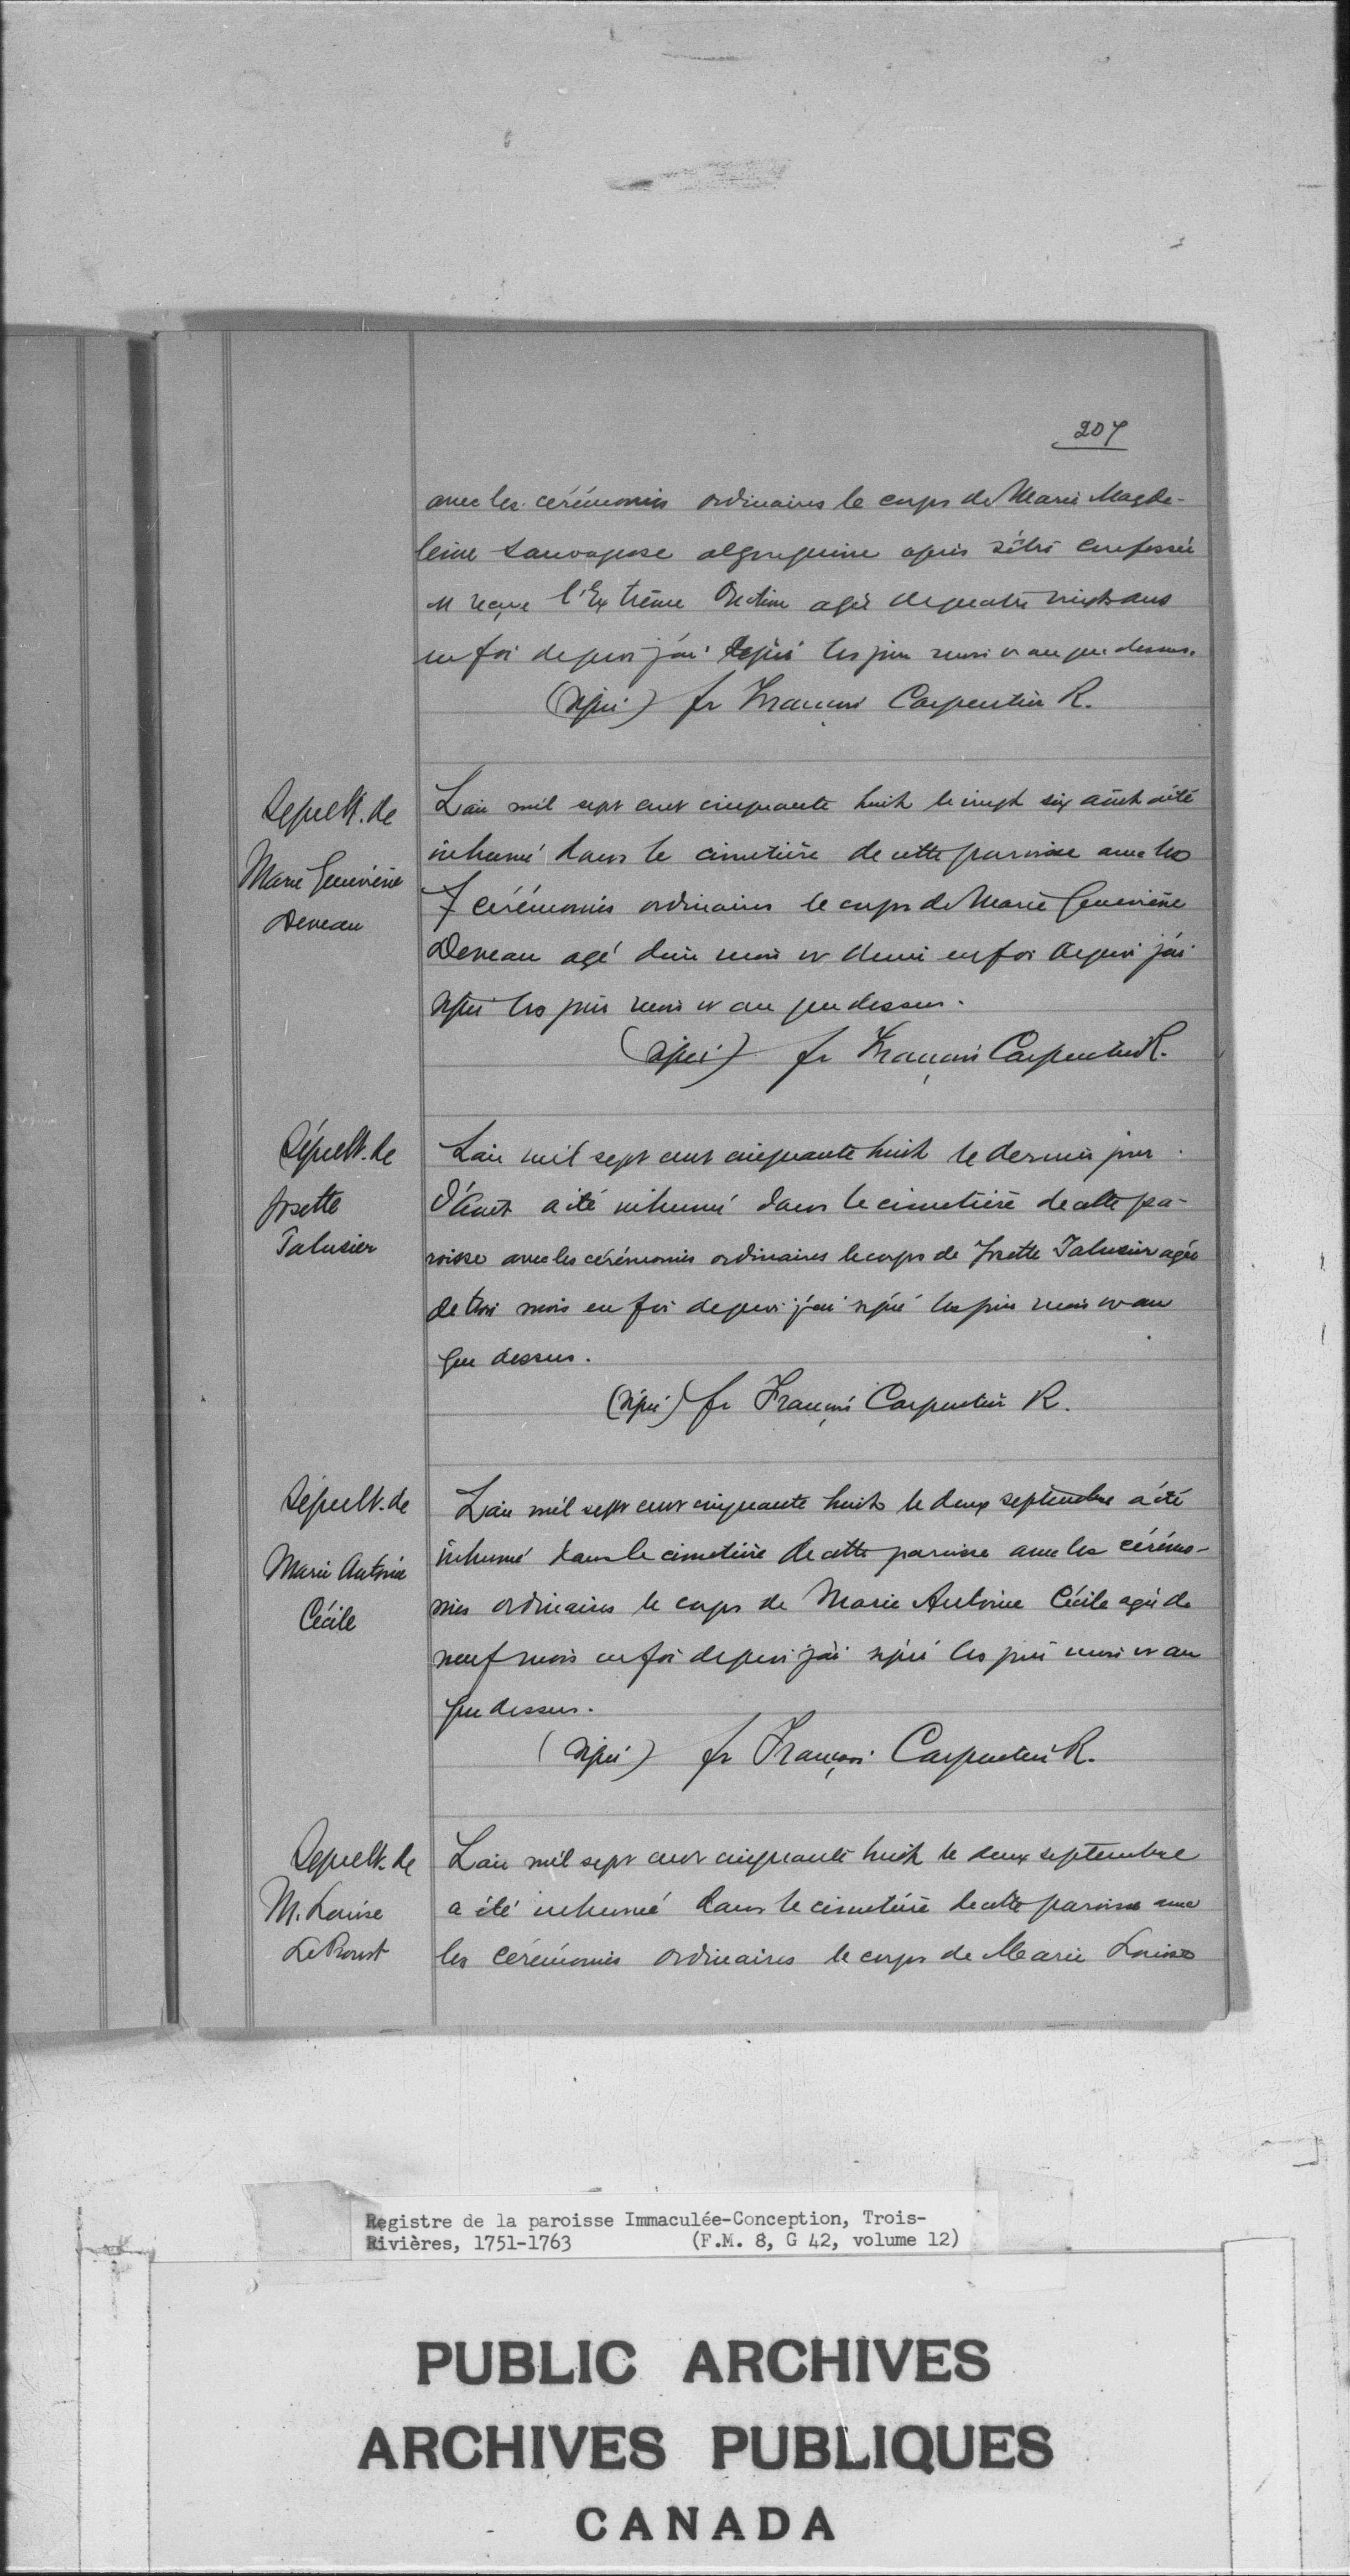 207
avec les cérémonies ordinaires le corps de Marie Magde-
leine Sauvagese algonquine après s'être confessée
et reçue l'Extrême Onction agée de quatre vingts ans
en foi de quoi j'ai signé les jour mois et an que dessus.
(signé) fr François Carpentier R.
Sépult. de
Marie Geneviève
Deveau
L'an mil sept cent cinquante huit le vingt six août a été
inhumé dans le cimetière de cette paroisse avec les
7 cérémonies ordinaires le corps de Marie Geneviève
Deveau agé d'un mois et demi en foi de quoi j'ai
signé les jour mois et an que dessus.
(signé) fr François Carpentier R.
Sépult. de
Josette
Talusier
L'an mil sept cent cinquante huit le dernier jour
d'Août a été inhumé dans le cimetière de cette pa-
roisse avec les cérémonies ordinaires le corps de Josette Talusier agée
de trois mois en foi de quoi j'ai signé les jour mois et an
que dessus.
(signé) fr François Carpentier R.
Sépult. de
Marie Antoine
Cécile
L'an mil sept cent cinquante huit le deux septembre a été
inhumé dans le cimetière de cette paroisse avec les cérémo-
nies ordinaires le corps de Marie Antoine Cécile agée de
neuf mois en foi de quoi j'ai signé les jour mois et an
que dessus.
(signé) fr François Carpentier R.
Sépult. de
M. Louise
LeProust
L'an mil sept cent cinquante huit le deux septembre
a été inhumé dans le cimetière de cette paroisse avec
les cérémonies ordinaires le corps de Marie Louise
Registre de la paroisse Immaculée-Conception, Trois-
Rivières, 1751-1763 (F.M. 8, G 42, volume 12)
PUBLIC ARCHIVES
ARCHIVES PUBLIQUES
CANADA